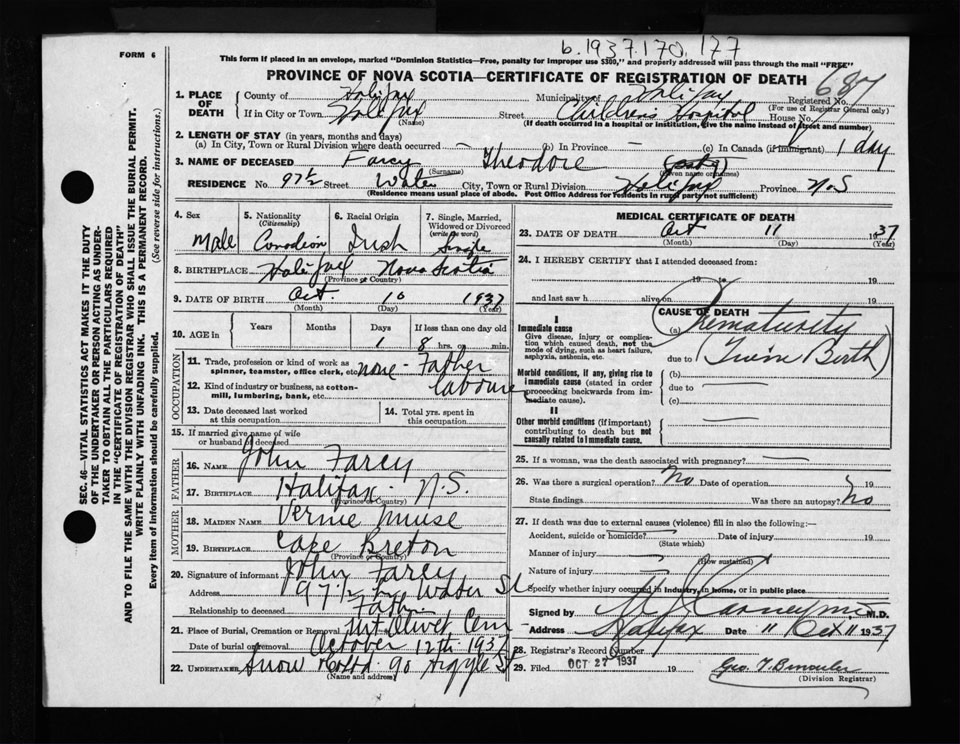 b. 1937. 170. 177
FORM 6
This form if placed in an envelope, marked "Dominion Statistics—Free, penalty for improper use $300," and properly addressed will pass through the mail "FREE"
PROVINCE OF NOVA SCOTIA—CERTIFICATE OF REGISTRATION OF DEATH
SEC. 46—VITAL STATISTICS ACT MAKES IT THE DUTY
OF THE UNDERTAKER OR PERSON ACTING AS UNDER-
TAKER TO OBTAIN ALL THE PARTICULARS REQUIRED
IN THE "CERTIFICATE OF REGISTRATION OF DEATH"
AND TO FILE THE SAME WITH THE DIVISION REGISTRAR WHO SHALL ISSUE THE BURIAL PERMIT.
WRITE PLAINLY WITH UNFADING INK. THIS IS A PERMANENT RECORD.
Every item of information should be carefully supplied. (See reverse side for instructions.)
1. PLACE OF DEATH
County of Halifax Municipality of Halifax Registered No. 687
(For use of Registrar General only)
If in City or Town Halifax Street Childrens Hospital House No.
(Name) (If death occurred in a hospital or institution, give the name instead of street and number)
2. LENGTH OF STAY (in years, months and days)
(a) In City, Town or Rural Division where death occurred — (b) In Province — (c) In Canada (if immigrant) 1 day
3. NAME OF DECEASED Farcy Theodore
(Surname) (Given name or names)
RESIDENCE No. 97½ Street Water City, Town or Rural Division Halifax Province N.S
(Residence means usual place of abode. Post Office Address for Residents in rural parts not sufficient)
4. Sex 5. Nationality (Citizenship) 6. Racial Origin 7. Single, Married, Widowed or Divorced (write the word)
Male Canadian Irish Single
8. BIRTHPLACE Halifax Nova Scotia
(Province or Country)
9. DATE OF BIRTH Oct. 10 1937
(Month) (Day) (Year)
10. AGE in Years Months Days If less than one day old
1 8 hrs. or min.
OCCUPATION
11. Trade, profession or kind of work as spinner, teamster, office clerk, etc. none - Father
12. Kind of industry or business, as cotton-mill, lumbering, bank, etc. labourer
13. Date deceased last worked at this occupation 14. Total yrs. spent in this occupation
15. If married give name of wife or husband of deceased
FATHER
16. NAME John Farcy
17. BIRTHPLACE Halifax N.S.
(Province or Country)
MOTHER
18. MAIDEN NAME Vernie Muise
19. BIRTHPLACE Cape Breton
(Province or Country)
20. Signature of informant John Farcy
Address 97½ Water St
Relationship to deceased Father
21. Place of Burial, Cremation or Removal Mt. Olivet Cem
Date of burial or removal October 12th 1937
22. UNDERTAKER Snow Co Ltd. 90 Argyle St
(Name and address)
MEDICAL CERTIFICATE OF DEATH
23. DATE OF DEATH Oct 11 1937
(Month) (Day) (Year)
24. I HEREBY CERTIFY that I attended deceased from:
19 to 19
and last saw h alive on 19
CAUSE OF DEATH
I
Immediate cause
Give disease, injury or complication which caused death, not the mode of dying, such as heart failure, asphyxia, asthenia, etc.
(a) Prematurity
due to (Twin Birth)
Morbid conditions, if any, giving rise to immediate cause (stated in order proceeding backwards from immediate cause).
(b)
due to —
(c)
II
Other morbid conditions (if important) contributing to death but not causally related to immediate cause.
25. If a woman, was the death associated with pregnancy? —
26. Was there a surgical operation? No Date of operation 19
State findings Was there an autopsy? No
27. If death was due to external causes (violence) fill in also the following:—
Accident, suicide or homicide? Date of injury 19
(State which)
Manner of injury
(How sustained)
Nature of injury
Specify whether injury occurred in industry, in home, or in public place
Signed by M.D.
Address Halifax Date 11 Oct 11 1937
28. Registrar's Record Number
29. Filed OCT 27 1937 19
(Division Registrar)